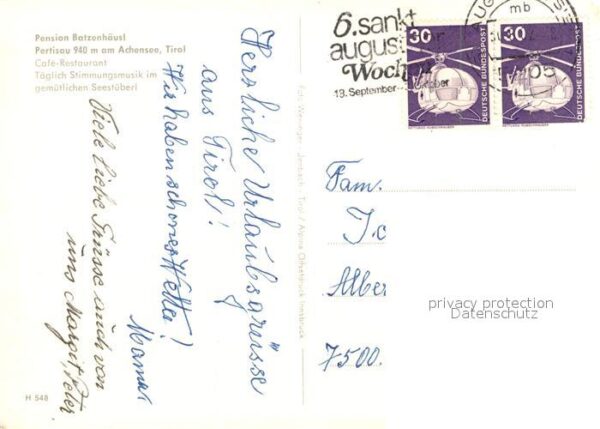 Pension Batzenhäusl
Pertisau 940 m am Achensee, Tirol
Café-Restaurant
Täglich Stimmungsmusik im
gemütlichen Seestüberl
Herzliche Urlaubsgrüsse
aus Tirol!
Wir haben schönes Wetter!
Mama
Viele liebe Grüsse auch von
uns Margit, Peter
H 548
Foto Wieninger · Jenbach · Tirol / Alpina Offsetdruck Innsbruck
6. sankt
august
Woch
13. September
mb
30
DEUTSCHE BUNDESPOST
30
DEUTSCHE BUNDESPOST
Fam.
Alber
7500
privacy protection
Datenschutz